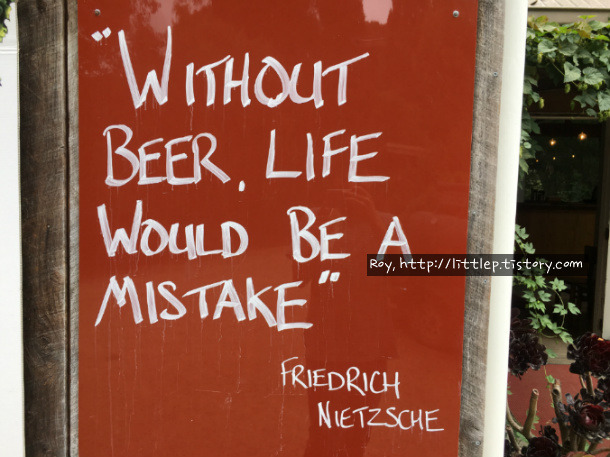 "WITHOUT
BEER, LIFE
WOULD BE A
MISTAKE"
FRIEDRICH
NIETZSCHE
Roy, http://littlep.tistory.com